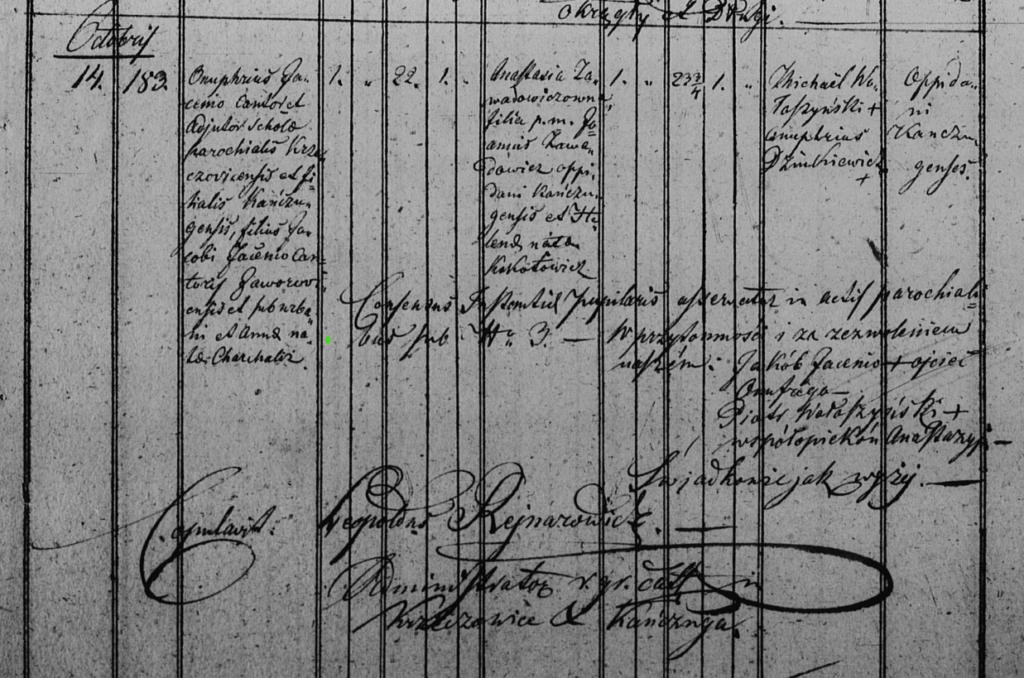 okrzęty et Drużj.
Octobris
14. 183. Onuphrius Ja-
cenio Cantor et
Adjutor Scholæ
parochialis Krze-
czovicensis et fi-
lialis Kańczu-
gensis, filius Ja-
cobi Jacenio Can-
toris Jaworow-
ensis et suburba-
ni et Annæ na-
tæ Charchalis.
1. " 22. 1. "
Anastasia Za-
wadowiczowna
filia p. m. Jo-
annis Zawa-
dowicz oppi-
dani Kańczu-
gensis et He-
lenæ nata
Kokotowicz
1. " 23 3/4 1. "
Michaël Wo-
łoszyński +
Onuphrius
Dziukiewicz
+
Oppida-
ni
Kańczu-
genses.
Consensus Instantiæ pupilaris asservatur in actis parochiali-
bus sub Nr. 3. — W przytomności i za zezwoleniem
naszém: Jakób Jacenio + ojciec
Onufrego —
Piotr Wołoszyński +
współopiekun Anastazyi —
Świadkowie jak wyżej. —
Copulavit: Leopoldus Rejnarowicz. —
Administrator r. gr. cath. in
Krzeczowice & Kańczuga.